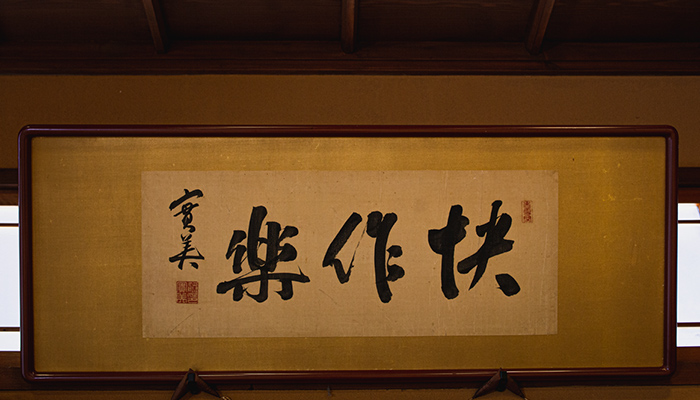 快作楽
實美